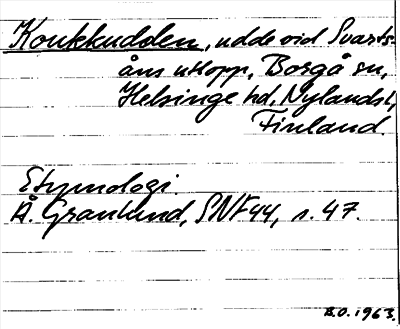 Koukkudden, udde vid Svarts-
åns utlopp, Borgå sn,
Helsinge hd, Nylands l.,
Finland.
Etymologi
Å. Granlund, SNF 44, s. 47.
B.O. 1963.